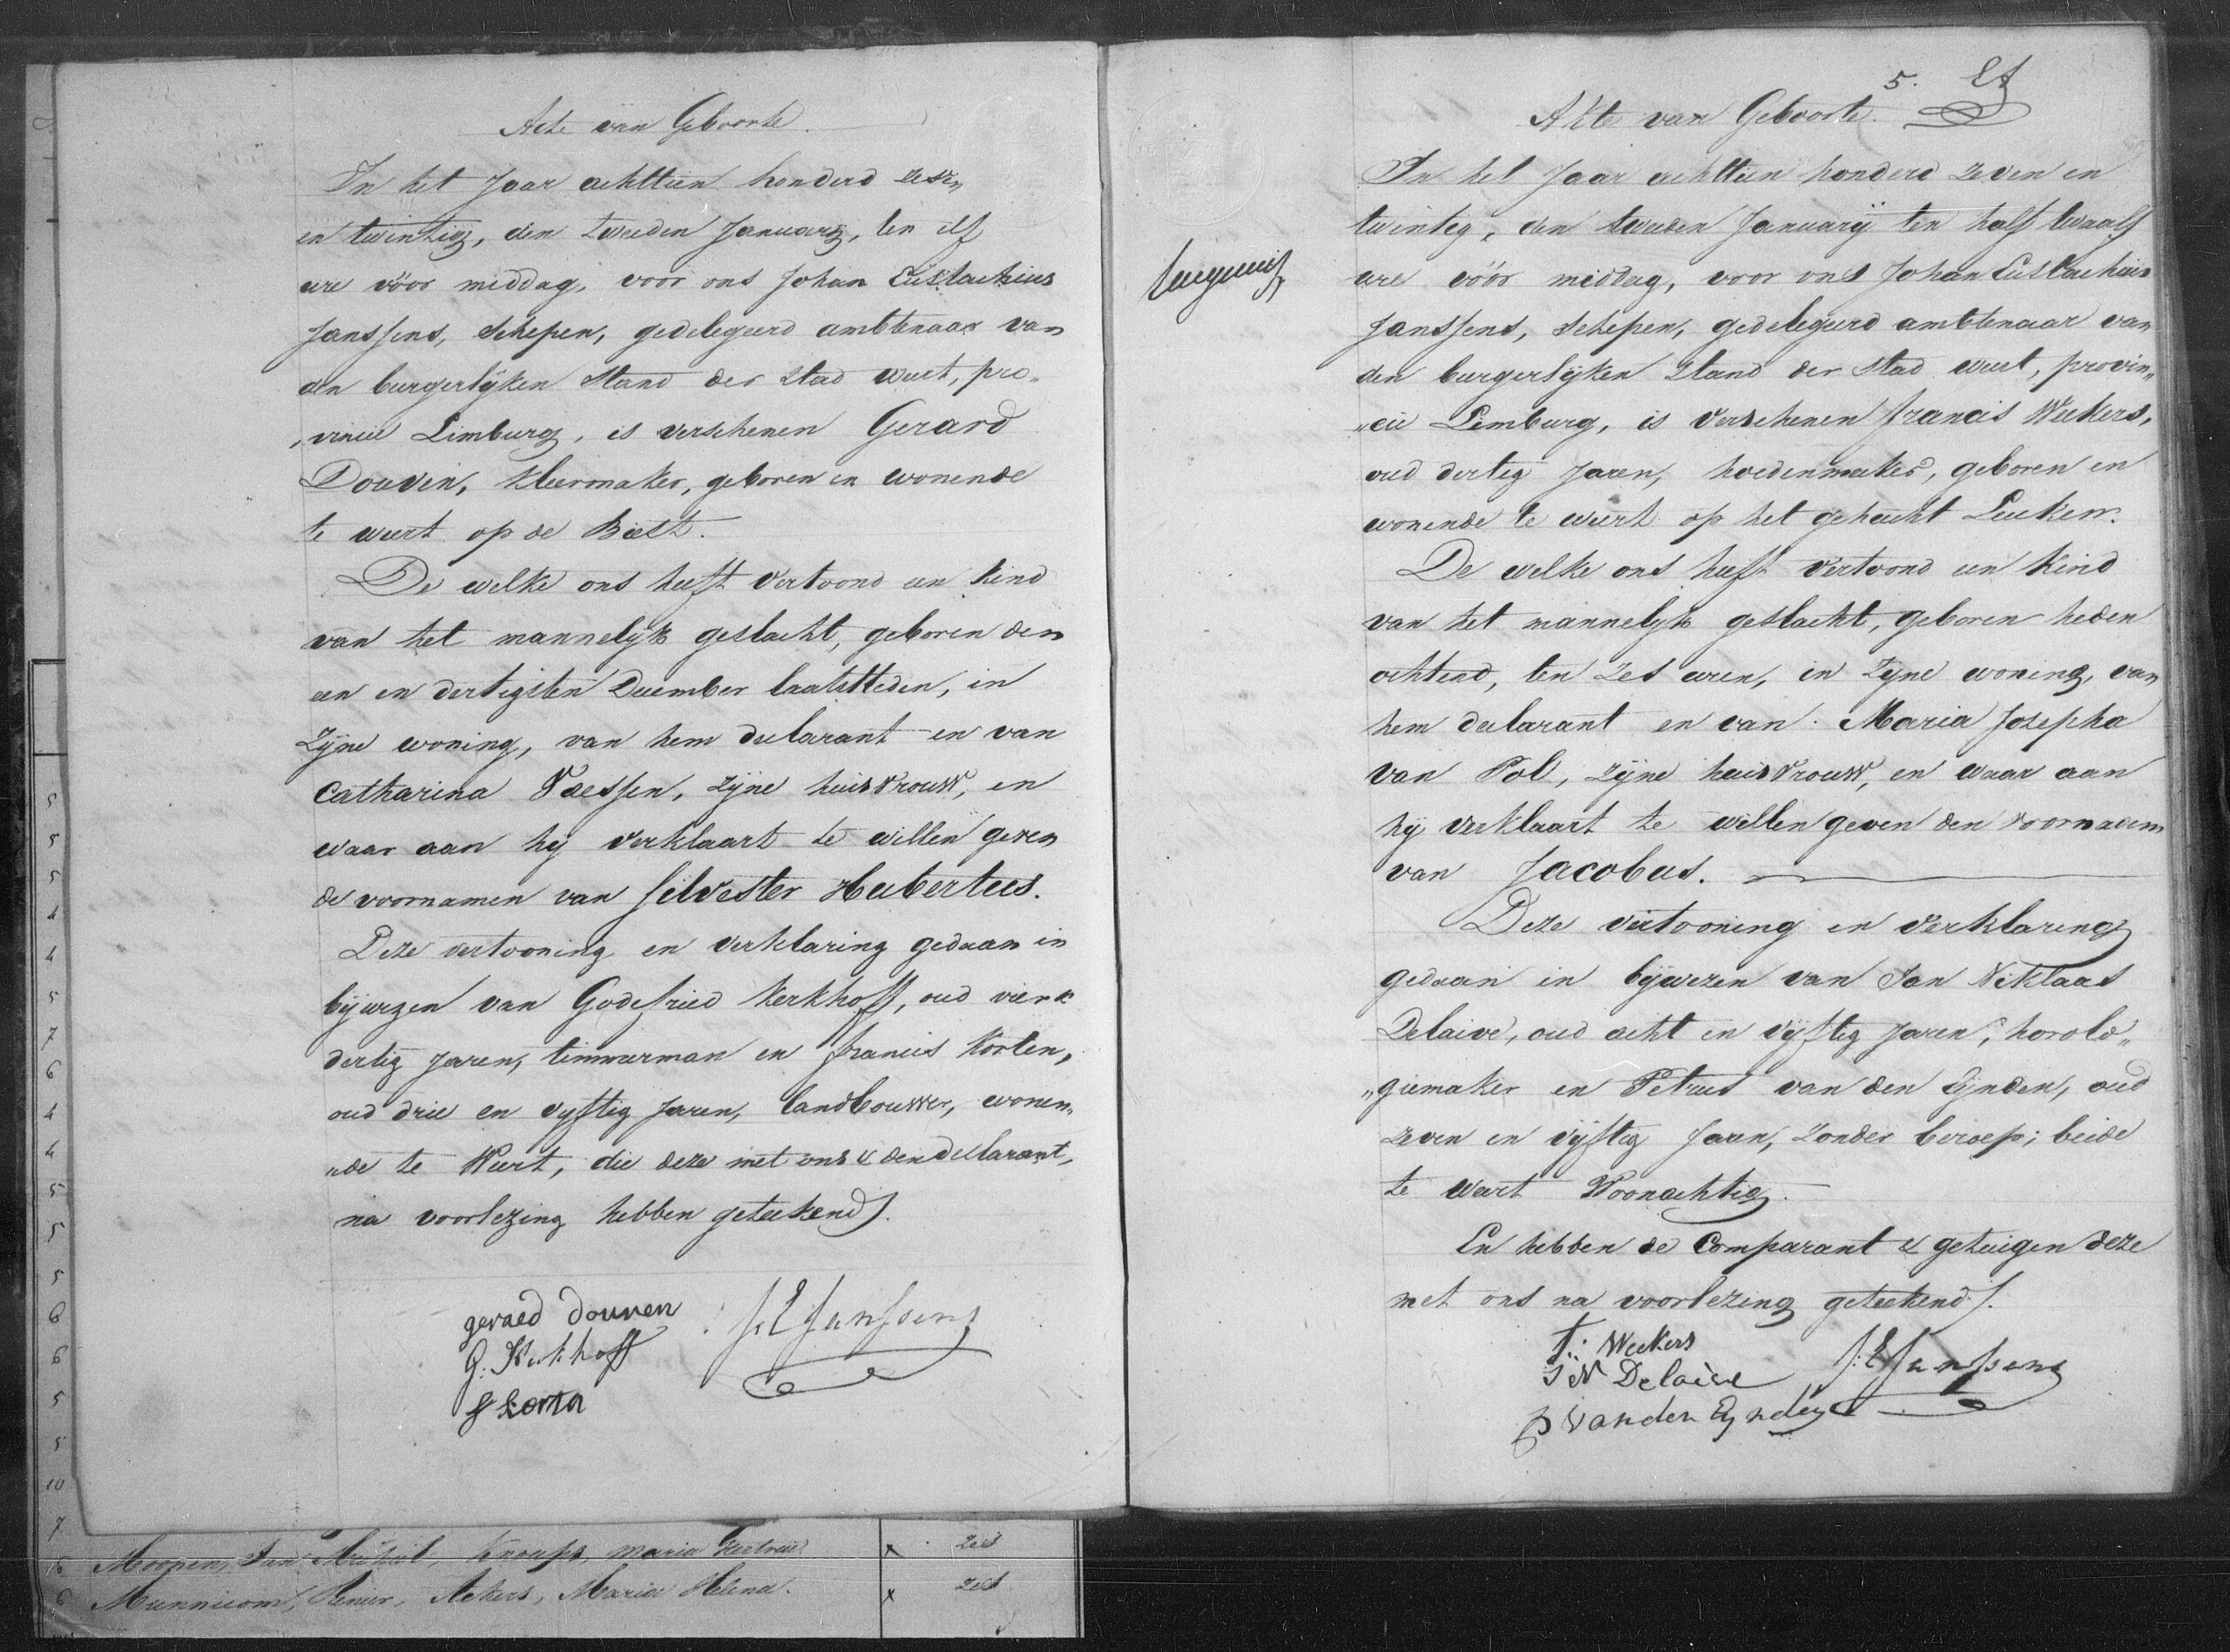 Acte van Geboorte.
In het Jaar achttien honderd zeven
en twintig, den tweeden January, ten elf
ure vöor middag, voor ons Johan Eustachius
Janssens, Schepen, gedelegeerd ambtenaar van
den burgerlijken Stand der Stad weert, pro„
„vincie Limburg, is verschenen Gerard
Douven, kleermaker, geboren en wonende
te weert op de Biest.
De welke ons heeft vertoond een kind
van het mannelijk geslacht, geboren den
een en dertigsten December laatstleden, in
Zijne woning, van hem declarant en van
Catharina Vaessen, zijne huisvrouw, en
waar aan hij verklaart te willen geven
de voornamen van Silvester Hubertus.
Deze vertooning en verklaring gedaan in
bijwezen van Godefried Kerkhoff, oud vier &
dertig jaren, timmerman en francis Korten,
oud drie en vyftig Jaren, landbouwer, wonen„
„de te Weert, die deze met ons & den declarant,
na voorlezing hebben geteekend.
geraed douven
G. Kerkhoff
J E Janssens
f korten
5.
Akte van Geboorte.
In het Jaar achttien honderd zeven en
twinteg, den tweeden January ten half twaalf
ure vöór middag, voor ons Johan Eustachius
Janssens, Schepen, gedelegeerd ambtenaar van
den burgerlijken Stand der Stad weert, provin„
„cie Limburg, is verschenen francis Weekers,
oud dertig jaren, hoedenmaker, geboren en
wonende te weert op het gehucht Leuken.
De welke ons heeft vertoond een kind
van het mannelijk geslacht, geboren heden
ochtend, ten zes uren, in zijne woning, van
hem declarant en van Maria Josepha
van Pol, zijne huisvrouw, en waar aan
hij verklaart te willen geven den voornaam
van Jacobus.
Deze vertooning en verklaring
gedaan in bijwezen van Jan Niklaas
Delaive, oud acht en vijftig Jaren, horolo„
„giemaker en Petrus van den Eynden, oud
zeven en vijftig Jaren, zonder beroep; beide
te weert Woonachtig.
En hebben de Comparant & getuigen deze
met ons na voorlezing geteekend.
f: Weekers
J N Delaive
J: E Janssens
P vanden Eynden
5
5
5
4
4
5
7
6
4
4
5
5
5
6
6
5
5
10
7
Moonen, Jan Michiel, Knaups, Maria x zes
6 Munnicom, Renier, Ackers, Maria Helena. x zes